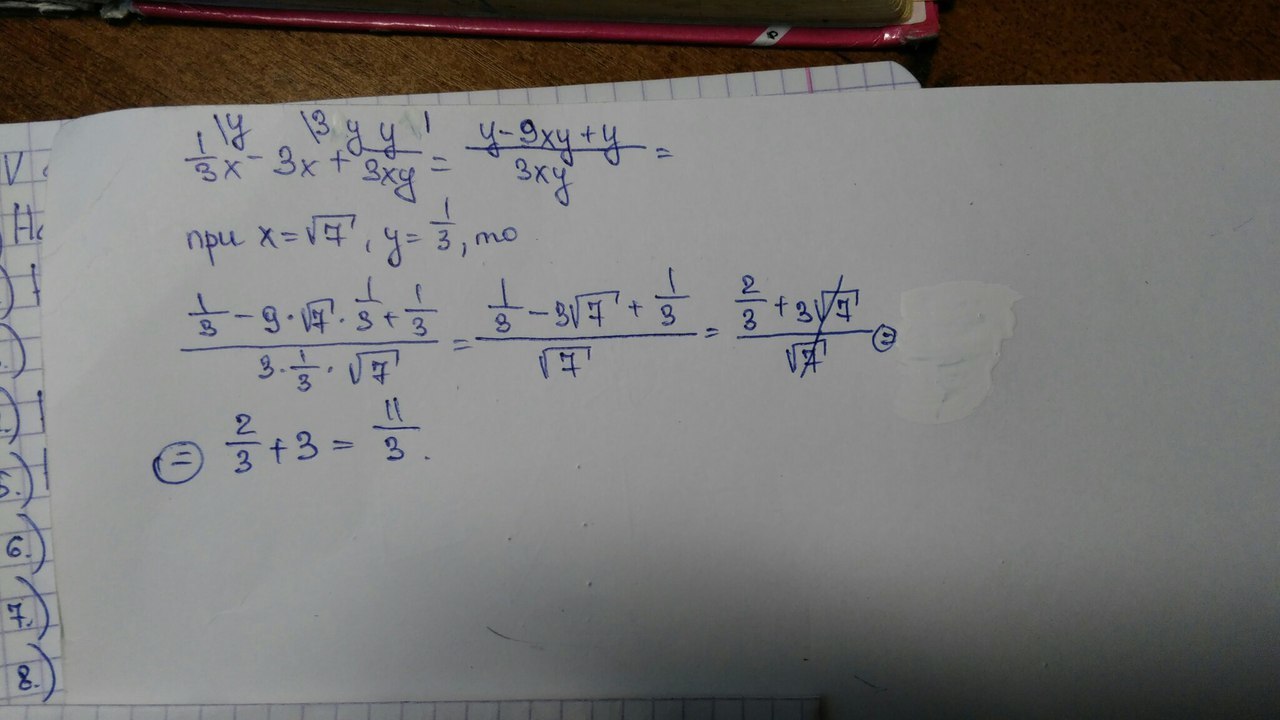 1/3x \y - 3x \3y + y/3xy \1 = (y-9xy+y)/3xy =
при x=√7, y=1/3, то
(1/3 - 9·√7·1/3 + 1/3)/(3·1/3·√7) = (1/3 - 3√7 + 1/3)/√7 = (2/3 + 3√7)/√7 =
= 2/3 + 3 = 11/3.
V
Н
5.)
6.)
7.)
8.)